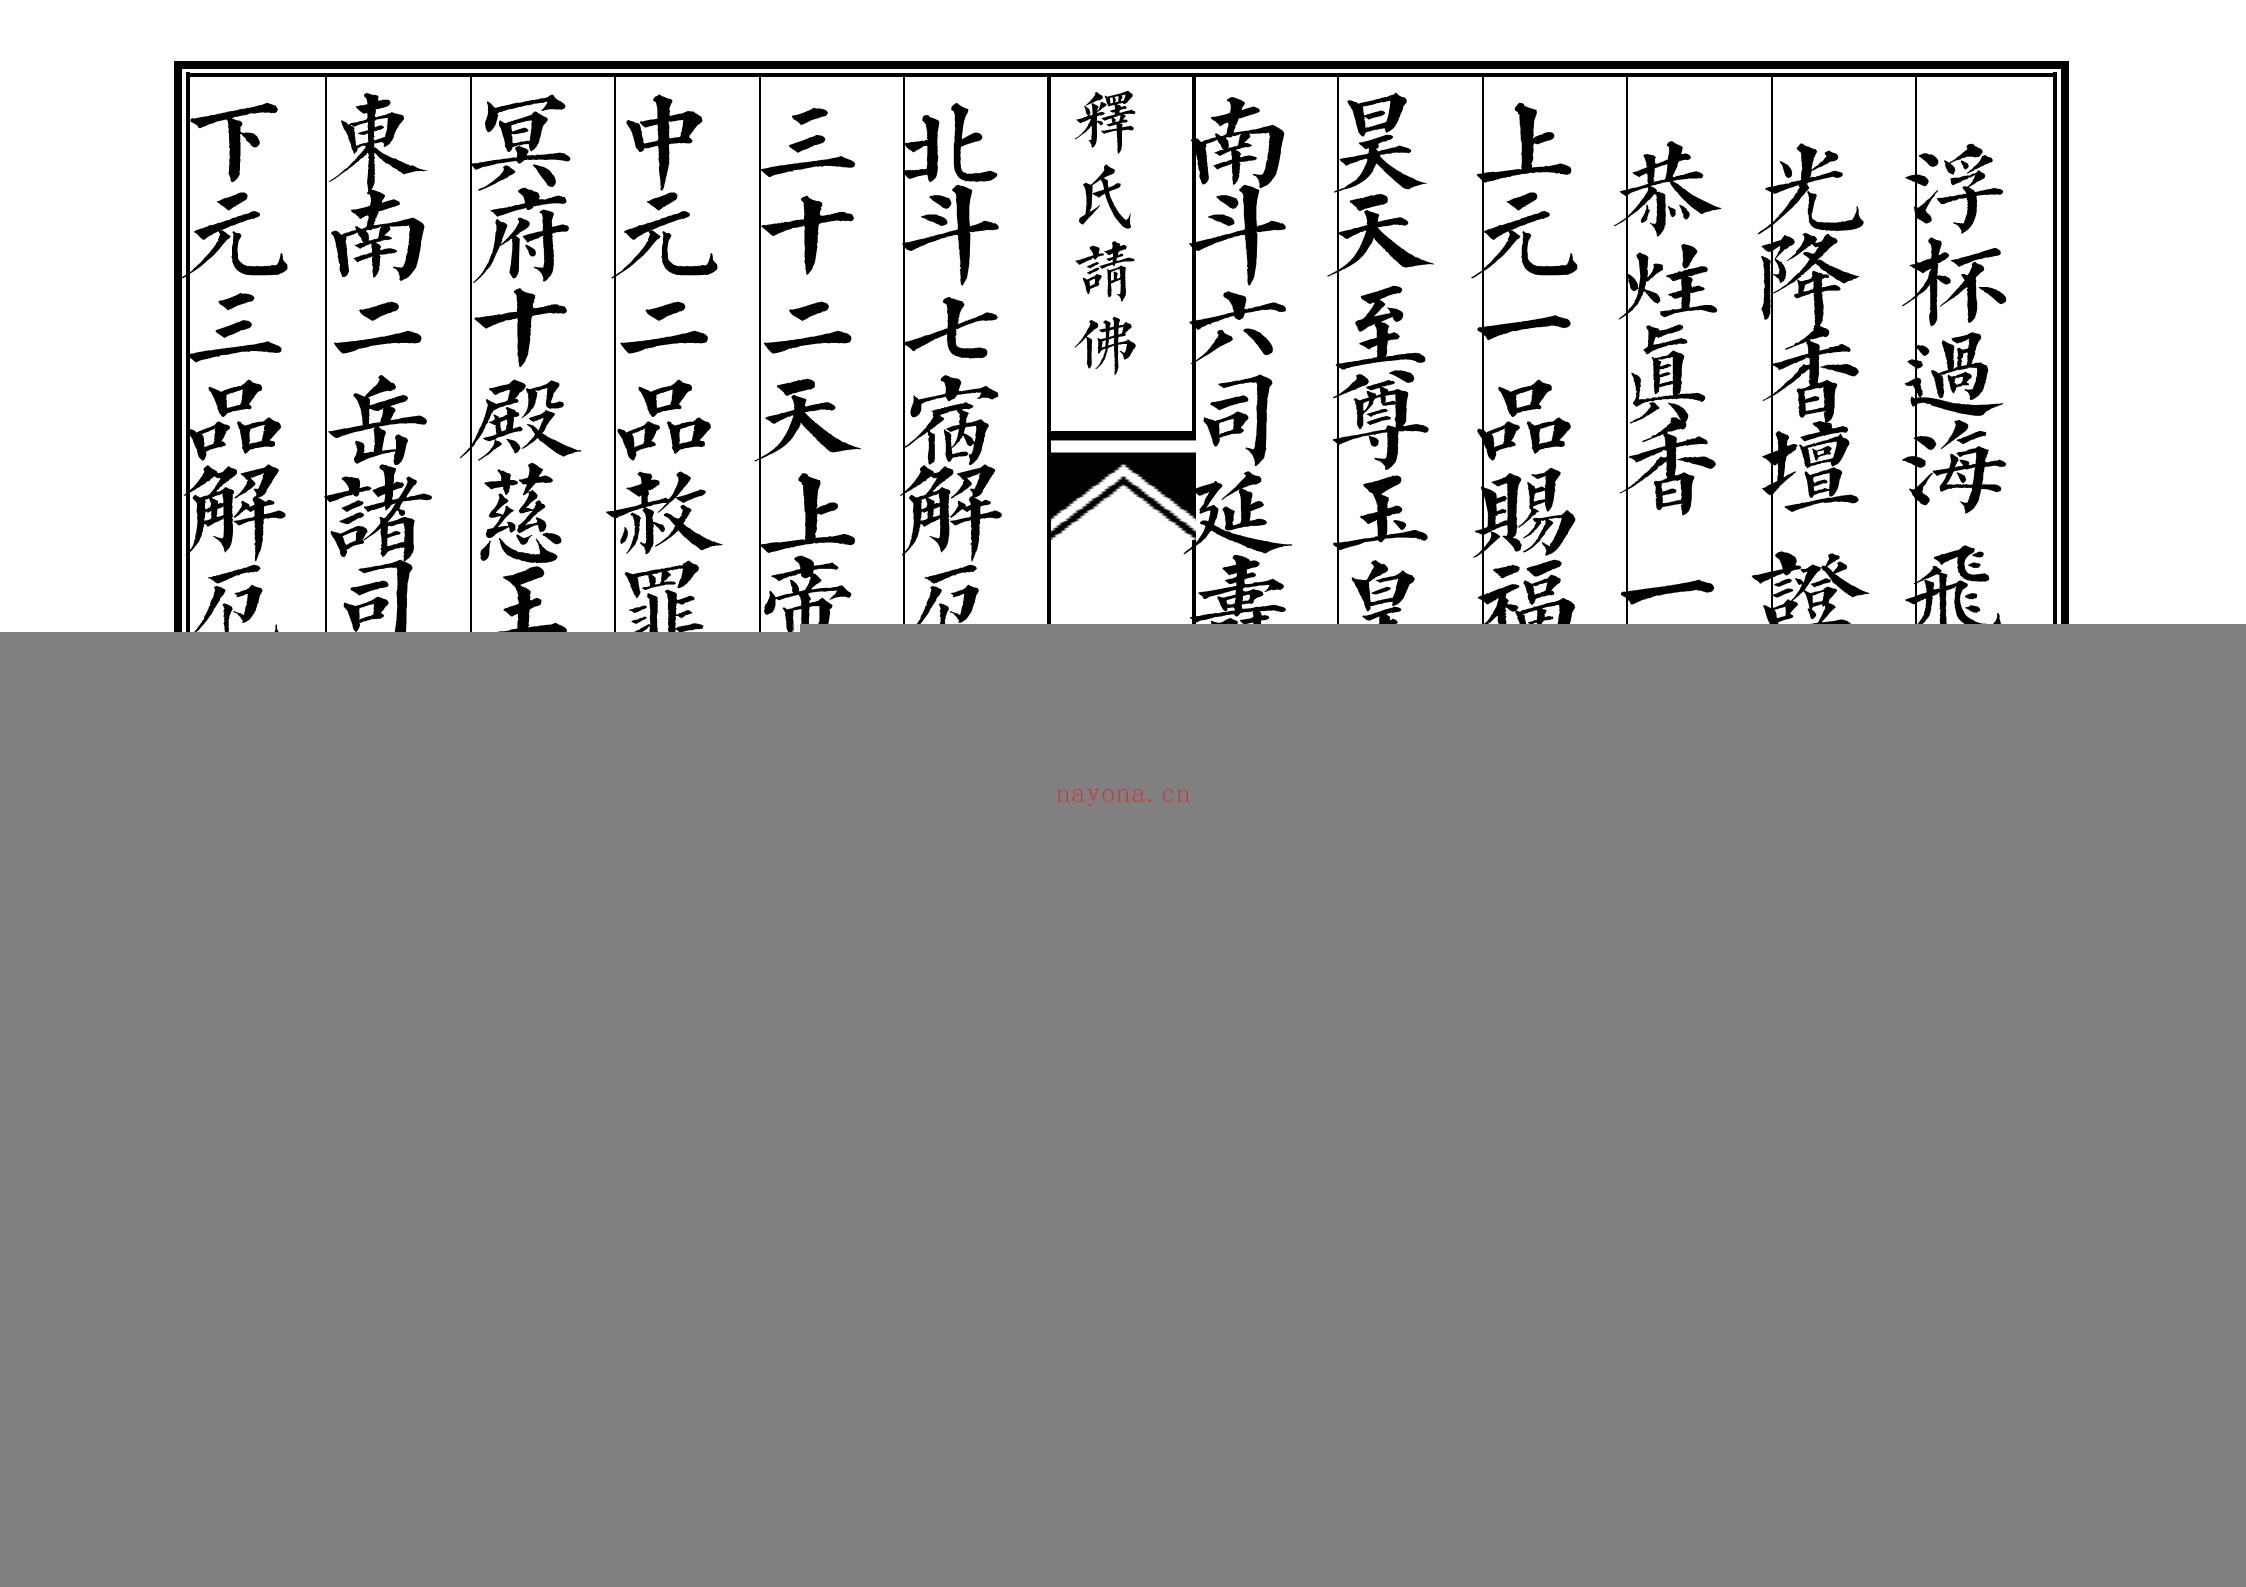 浮杯過海飛
光降香壇證
恭炷眞香一
上元一品賜福
昊天至尊玉皇
南斗六司延壽
釋氏請佛
北斗七宿解厄
三十二天上帝
中元二品赦罪
冥府十殿慈王
東南二岳諸司
下元三品解厄
nayona.cn